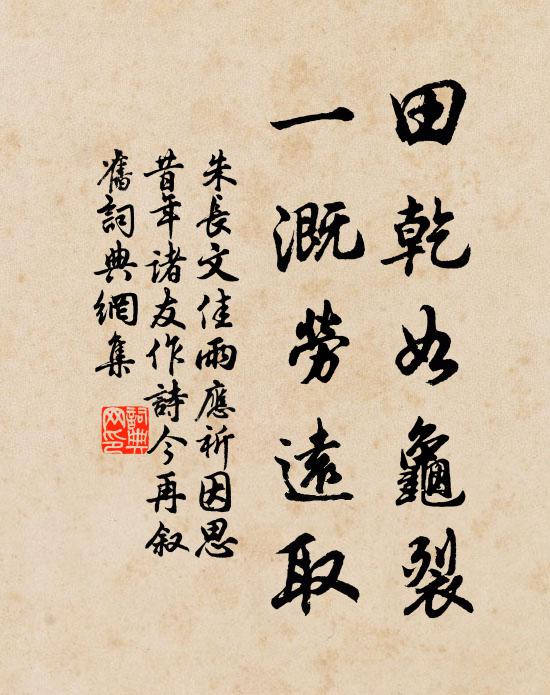 田乾如龜裂
一溉勞遠取
朱長文佳雨應祈因思
昔年諸友作詩今再叙
舊詞典網集
詞典網印